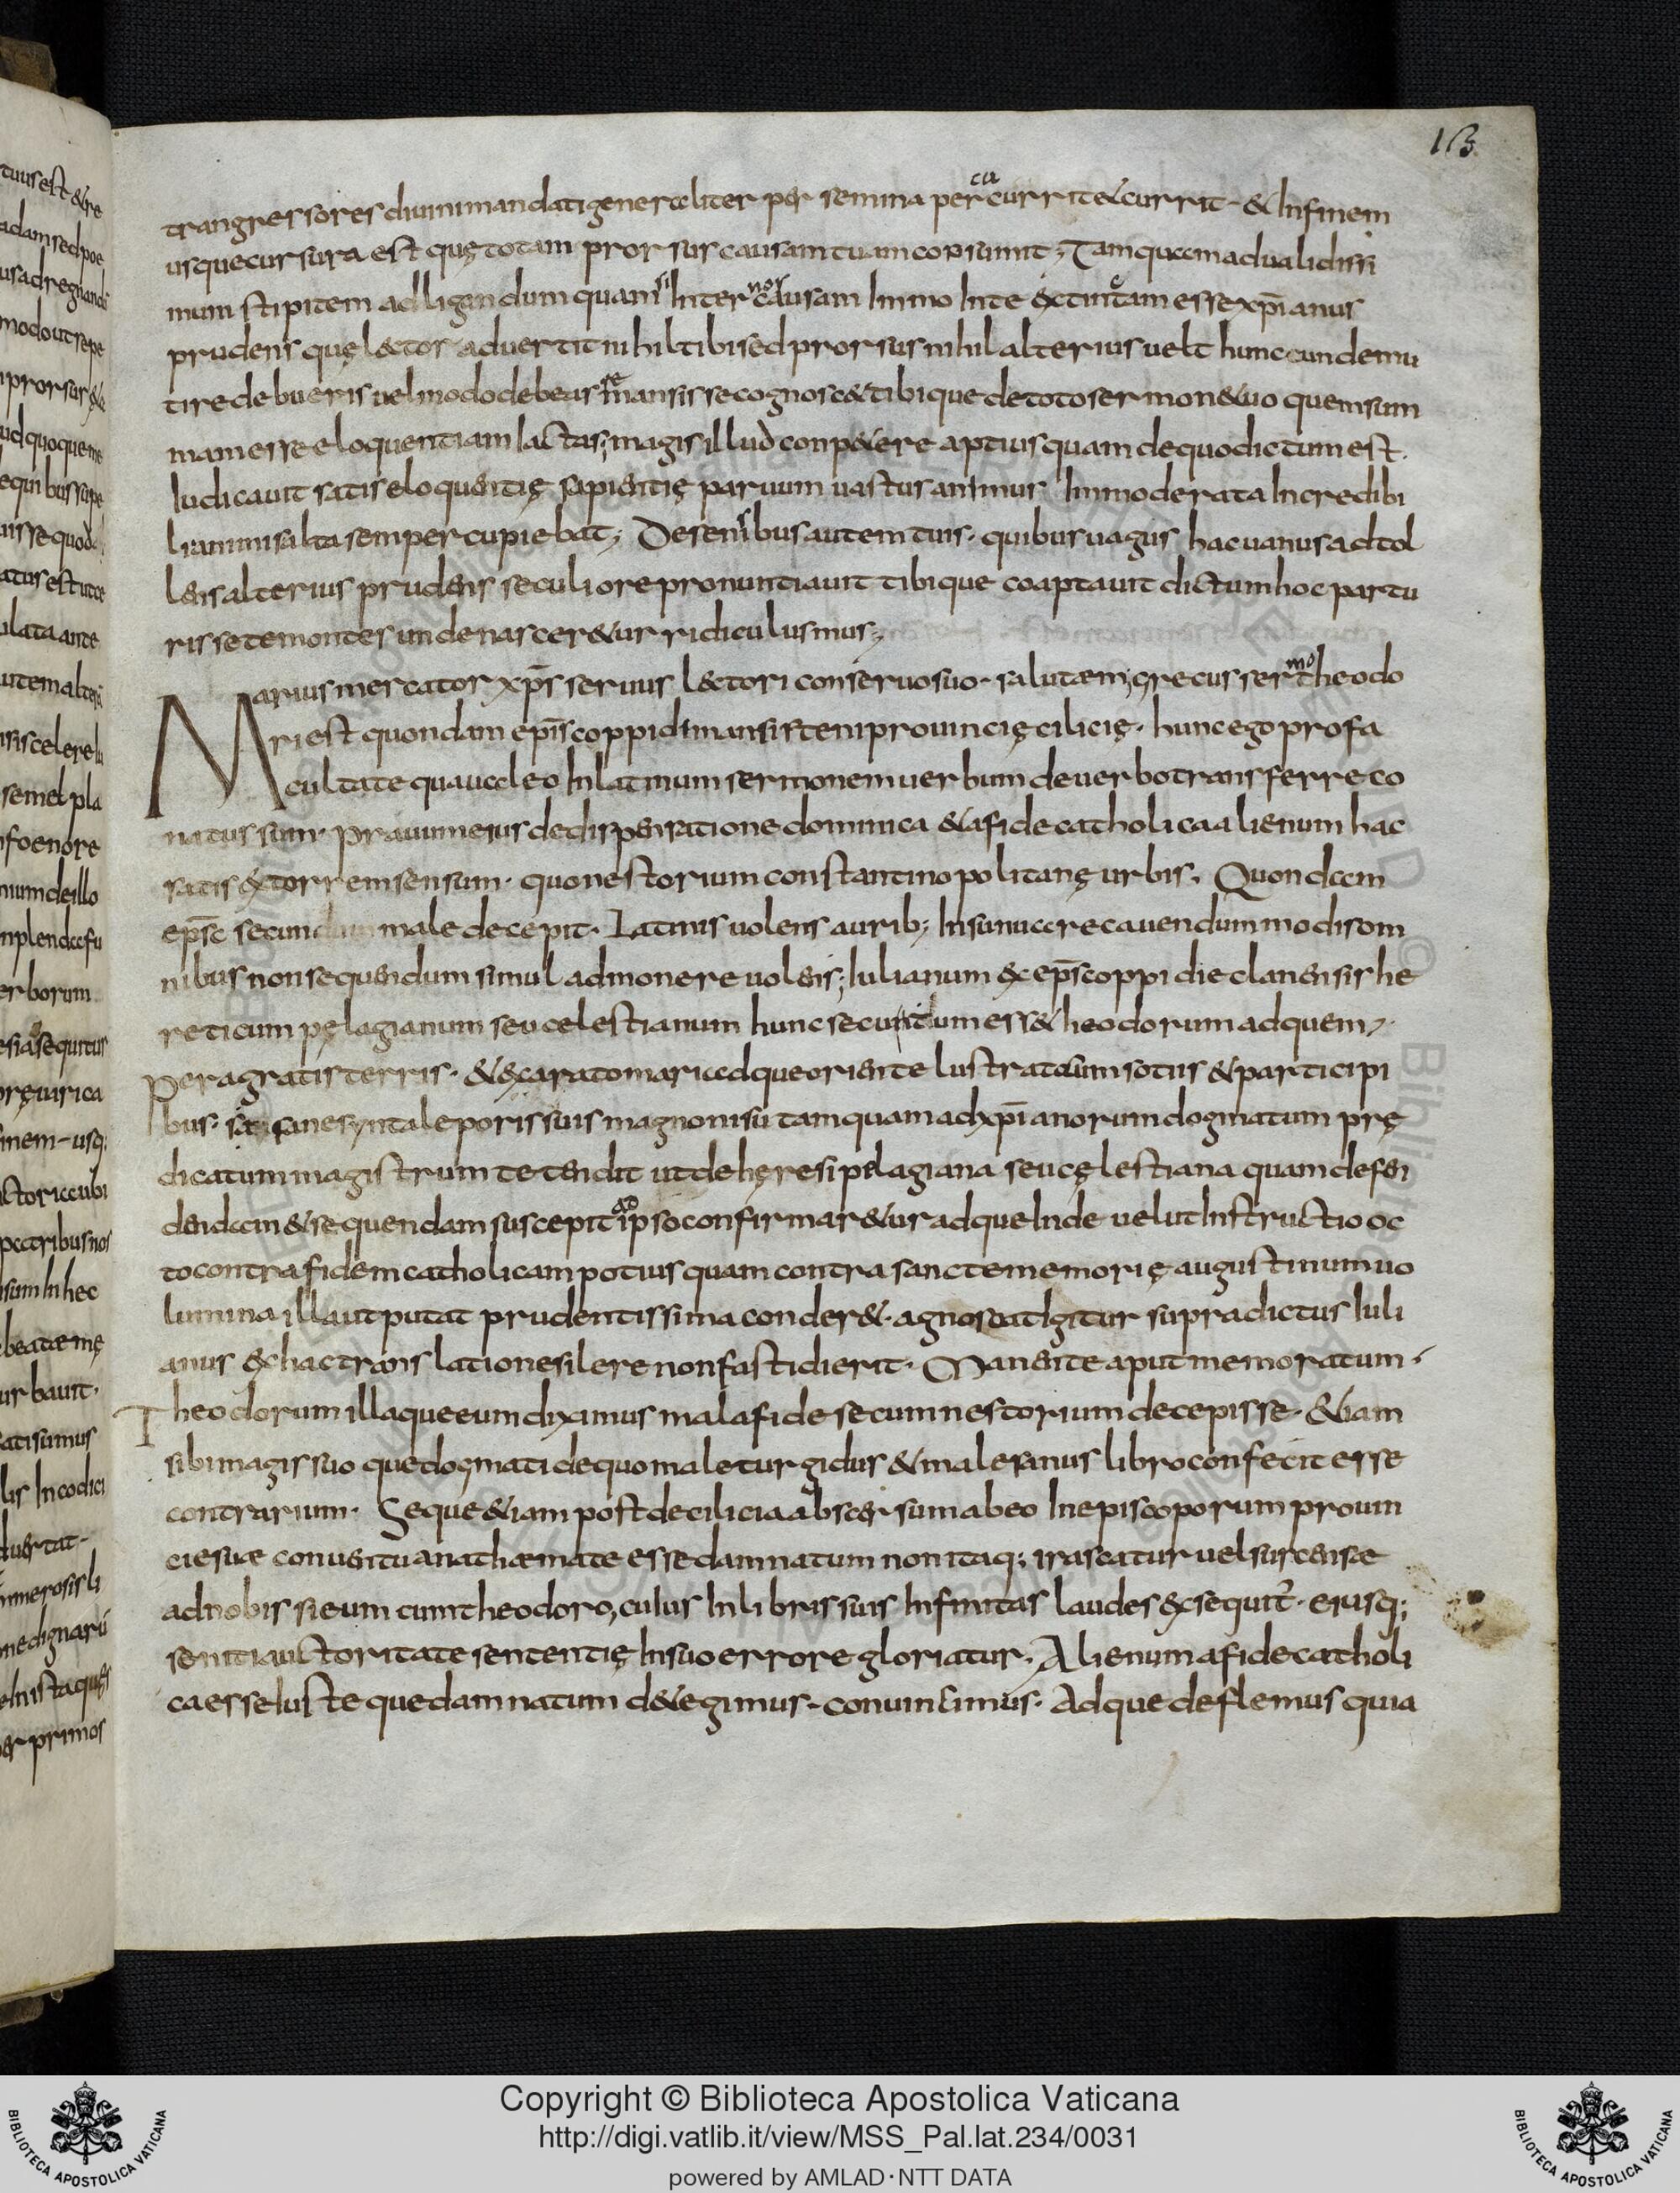 13
trangressores diuini mandati generaliter per semina percucurrit & currit & Infinem
usque cursura est quę totam prorsus causam tuam consumit; Tamquam ad ualidissi
mum stipitem ad ligandum quam si Inter nos causam Immo Inte extinctam esse xp̄ianus
prudens quę lector aduertit nihil tibi sed prorsus nihil alterius uelt hunc eundem u
tire debueris uel modo debeas remansisse cognoscet tibique de toto sermone tuo quem sum
mam esse eloquentiam Iactas; magis illud conpetere aptius quam de quo dictum est.
Iudicauit satis eloquentię sapientię paruum uastus animus Immoderata Incredibi
lia nimis alta semper cupiebat; De sensibus autem tuis. quibus uagus hac uanus adtol
lens alterius prudens seculi ore pronuntiauit tibique coaptauit dictum hoc partu
risse te montes unde nascer&ur ridiculus mus;
Marius mercator xp̄s seruus l&ctori conseruo suo. salutem; grecus sermo theodo
ri est quondam ep̄iscoppidi mansisteni prouincię cilicię. hunc ego pro fa
cultate qua ualeo In latinum sermonem uerbum de uerbo transferre co
natus sum. prauum eius de dispensatione dominica & a fide catholica alienum hac
satis &torrem sensum. quo nestorium constantinopolitanę urbis. Quondam
ep̄sc secundum male decepit. Latinis uolens aurib; Insinuare cauendum modis om
nibus non sequendum simul admonere uolens; Iulianum ex ep̄scoppidi eclanensis he
reticum pęlagianum seu celestianum hunc secutum ess& heodorum ad quem,
peragratis terris. & exarato mari adque oriente lustrato cum sotiis & participi
bus. suis magno nisu tamquam ad xp̄ianorum dogmatum prę
dicatum magistrum tetendit ut de hęresi pelagiana seu cęlestiana quam defen
dendam & sequendam suscepit ab ipso confirmar&ur adque Inde uelut Instructio oc
to contra fidem catholicam potius quam contra sancte memorię augustinum uo
lumina illa ut putat prudentissima conder&. agnoscat Igitur supradictus Iuli
anus ex hac translatione silere non fastidierit. Manente aput memoratum.
Theodorum illaque eum diximus mala fide secum nestorium decepisse. &iam
sibi magis suo que dogmati de quo male turgidus & male sanus libro confecit esse
contrarium. Seque &iam post de cilicia abscensum ab eo In episcoporum prouin
cie suæ conuentu anathæmate esse damnatum non itaq; irascatur uel surcenseæ
ad nobis si eum cum theodoro, cuius In libris suis Infinitas laudes exsequit̃. eiusq;
seniti auctoritate sententię In suo errore gloriatur. Alienum a fide catholi
ca esse Iusteque damnatum d&egimus. conuincimus. Adque deflemus quia
Copyright © Biblioteca Apostolica Vaticana
http://digi.vatlib.it/view/MSS_Pal.lat.234/0031
powered by AMLAD·NTT DATA